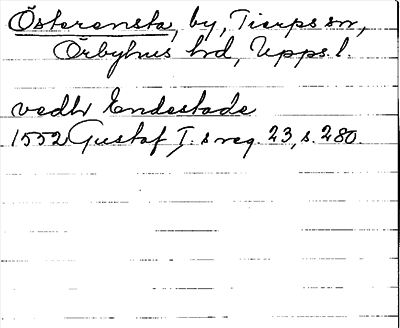 Österensta, by, Tierps sn,
Örbyhus hd, Upps. l.
vedh Endestade
1552 Gustaf I. s reg. 23, s. 280.